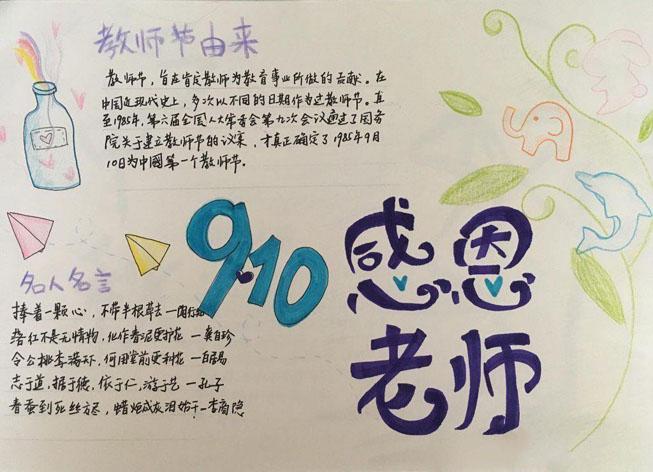 教师节由来
教师节，旨在肯定教师为教育事业所做的贡献。在
中国近现代史上，多次以不同的日期作为过教师节。直
至1985年，第六届全国人大常委会第九次会议通过了国务
院关于建立教师节的议案，才真正确定了1985年9月
10日为中國第一个教师节。
9.10
感恩
老师
名人名言
捧着一颗心，不带半根草去—陶行知
落红不是无情物，化作春泥更护花—龚自珍
令公桃李满 ，何用堂前更种花—白居易
志于道，据于德，依于仁，游于艺—孔子
春蚕到死丝方尽，蜡炬成灰泪始干—李商隐